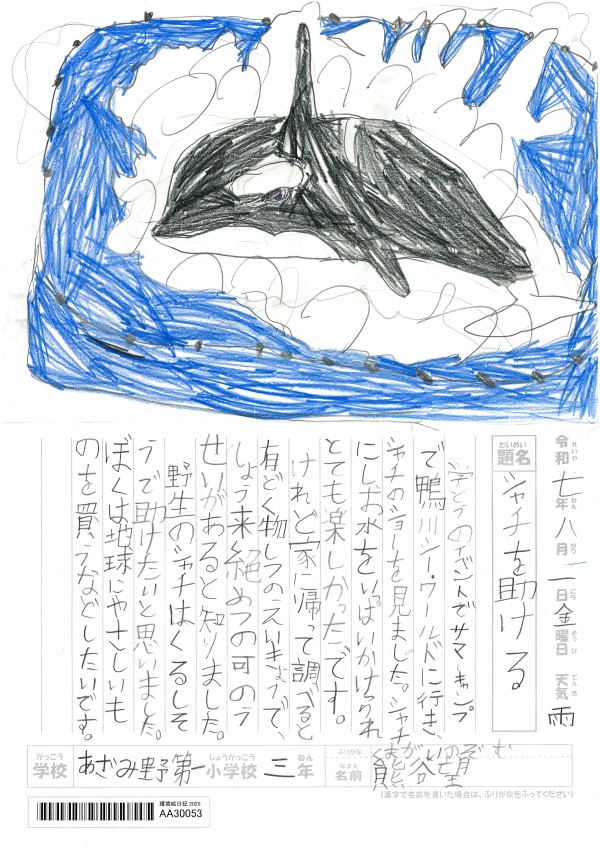 令和七年八月一日金曜日 天気 雨
れいわ ねん がつ にち ようび てんき
題名 シャチを助ける
だいめい
学どうのイベントでサマーキャンプ
で鴨川シー・ワールドに行き、
シャチのショーを見ました。シャチ
にしお水をいっぱいかけられ
とても楽しかったです。
けれど家に帰って調べると
有どく物しつのえいきょうで、
しょう来絶めつの可のう
せいがあると知りました。
野生のシャチはくるしそ
うで助けたいと思いました。
ぼくは地球にやさしいも
のを買うなどしたいです。
がっこう しょうがっこう ねん
学校 あざみ野第一小学校 三年
ふりがな くまがい のぞむ
なまえ
名前 熊谷 望
(漢字で名前を書いた場合は、ふりがなをふってください)
環境絵日記 2025
AA30053